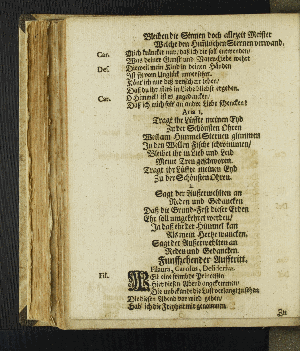 Bleiben die Sternen doch allezeit Meister
Welche den Himmlischen Sternen verwand.
Car. Mich kräncket nur, daß ich die soll entwerden/
Was deiner Gunst und Vater-Liebe wehrt
Def. Dieweil mein Kind in deinen Händen
Ist für dem Unglück
Könt ich nur daß versichert leben/
Daß du ihr stets in Liebe bleibst ergeben.
Car. O Himmel! ist es zugedencken/
Daß ich mich solt an andre Liebe schencken?
Aria 1.
Tragt ihr Lüffte meinen Eyd
Zu der Schönsten Ohren
Weil am Himmel Sternen glimmen
In den Wellen Fische schwimmen/
Bleibet ihr in Lieb und Leid
Meine Treu geschworen.
Tragt ihr Lüffte meinen Eyd
Zu der Schönsten Ohren.
2.
Sagt der Außerwehlten an
Reden und Gedancken
Daß die Grund-Fest dieser Erden
Ehe soll umgekehret werden/
Ja daß ehe der Himmel kan
Als mein Hertze wancken,
Sagt der Außerwehlten an
Reden und Gedancken.
Funffzehender Aufftritt.
Filaura, Carolus, Desiderius.
Fil. Ist eine frembde Princeßin
Hier diesen Abend angekommen/
Die unbekandte
Die diesen Abend vor wird gehen/
Hab' ich die Freyheit mit genommen
Zu